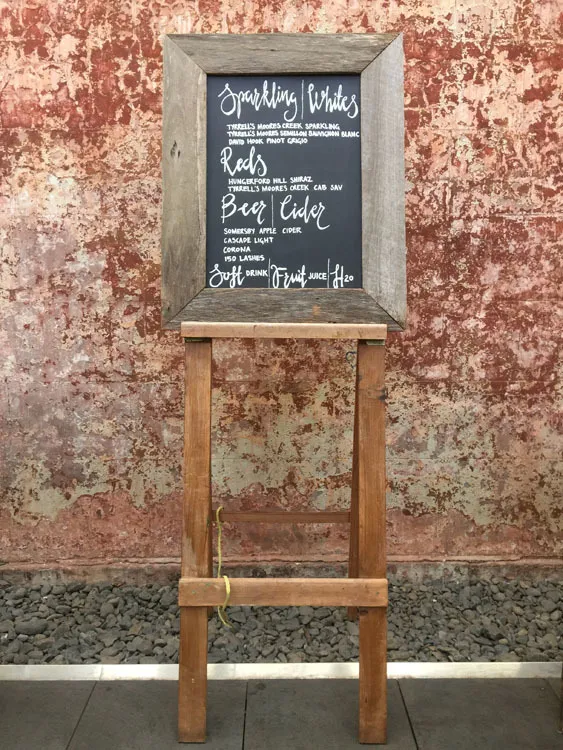 Sparkling | Whites
TYRRELL'S MOORES CREEK SPARKLING
TYRRELL'S MOORES SEMILLON SAUVIGNON BLANC
DAVID HOOK PINOT GRIGIO
Reds
HUNGERFORD HILL SHIRAZ
TYRRELL'S MOORES CREEK CAB SAV
Beer | Cider
SOMERSBY APPLE CIDER
CASCADE LIGHT
CORONA
150 LASHES
Soft DRINK | Fruit JUICE | H20